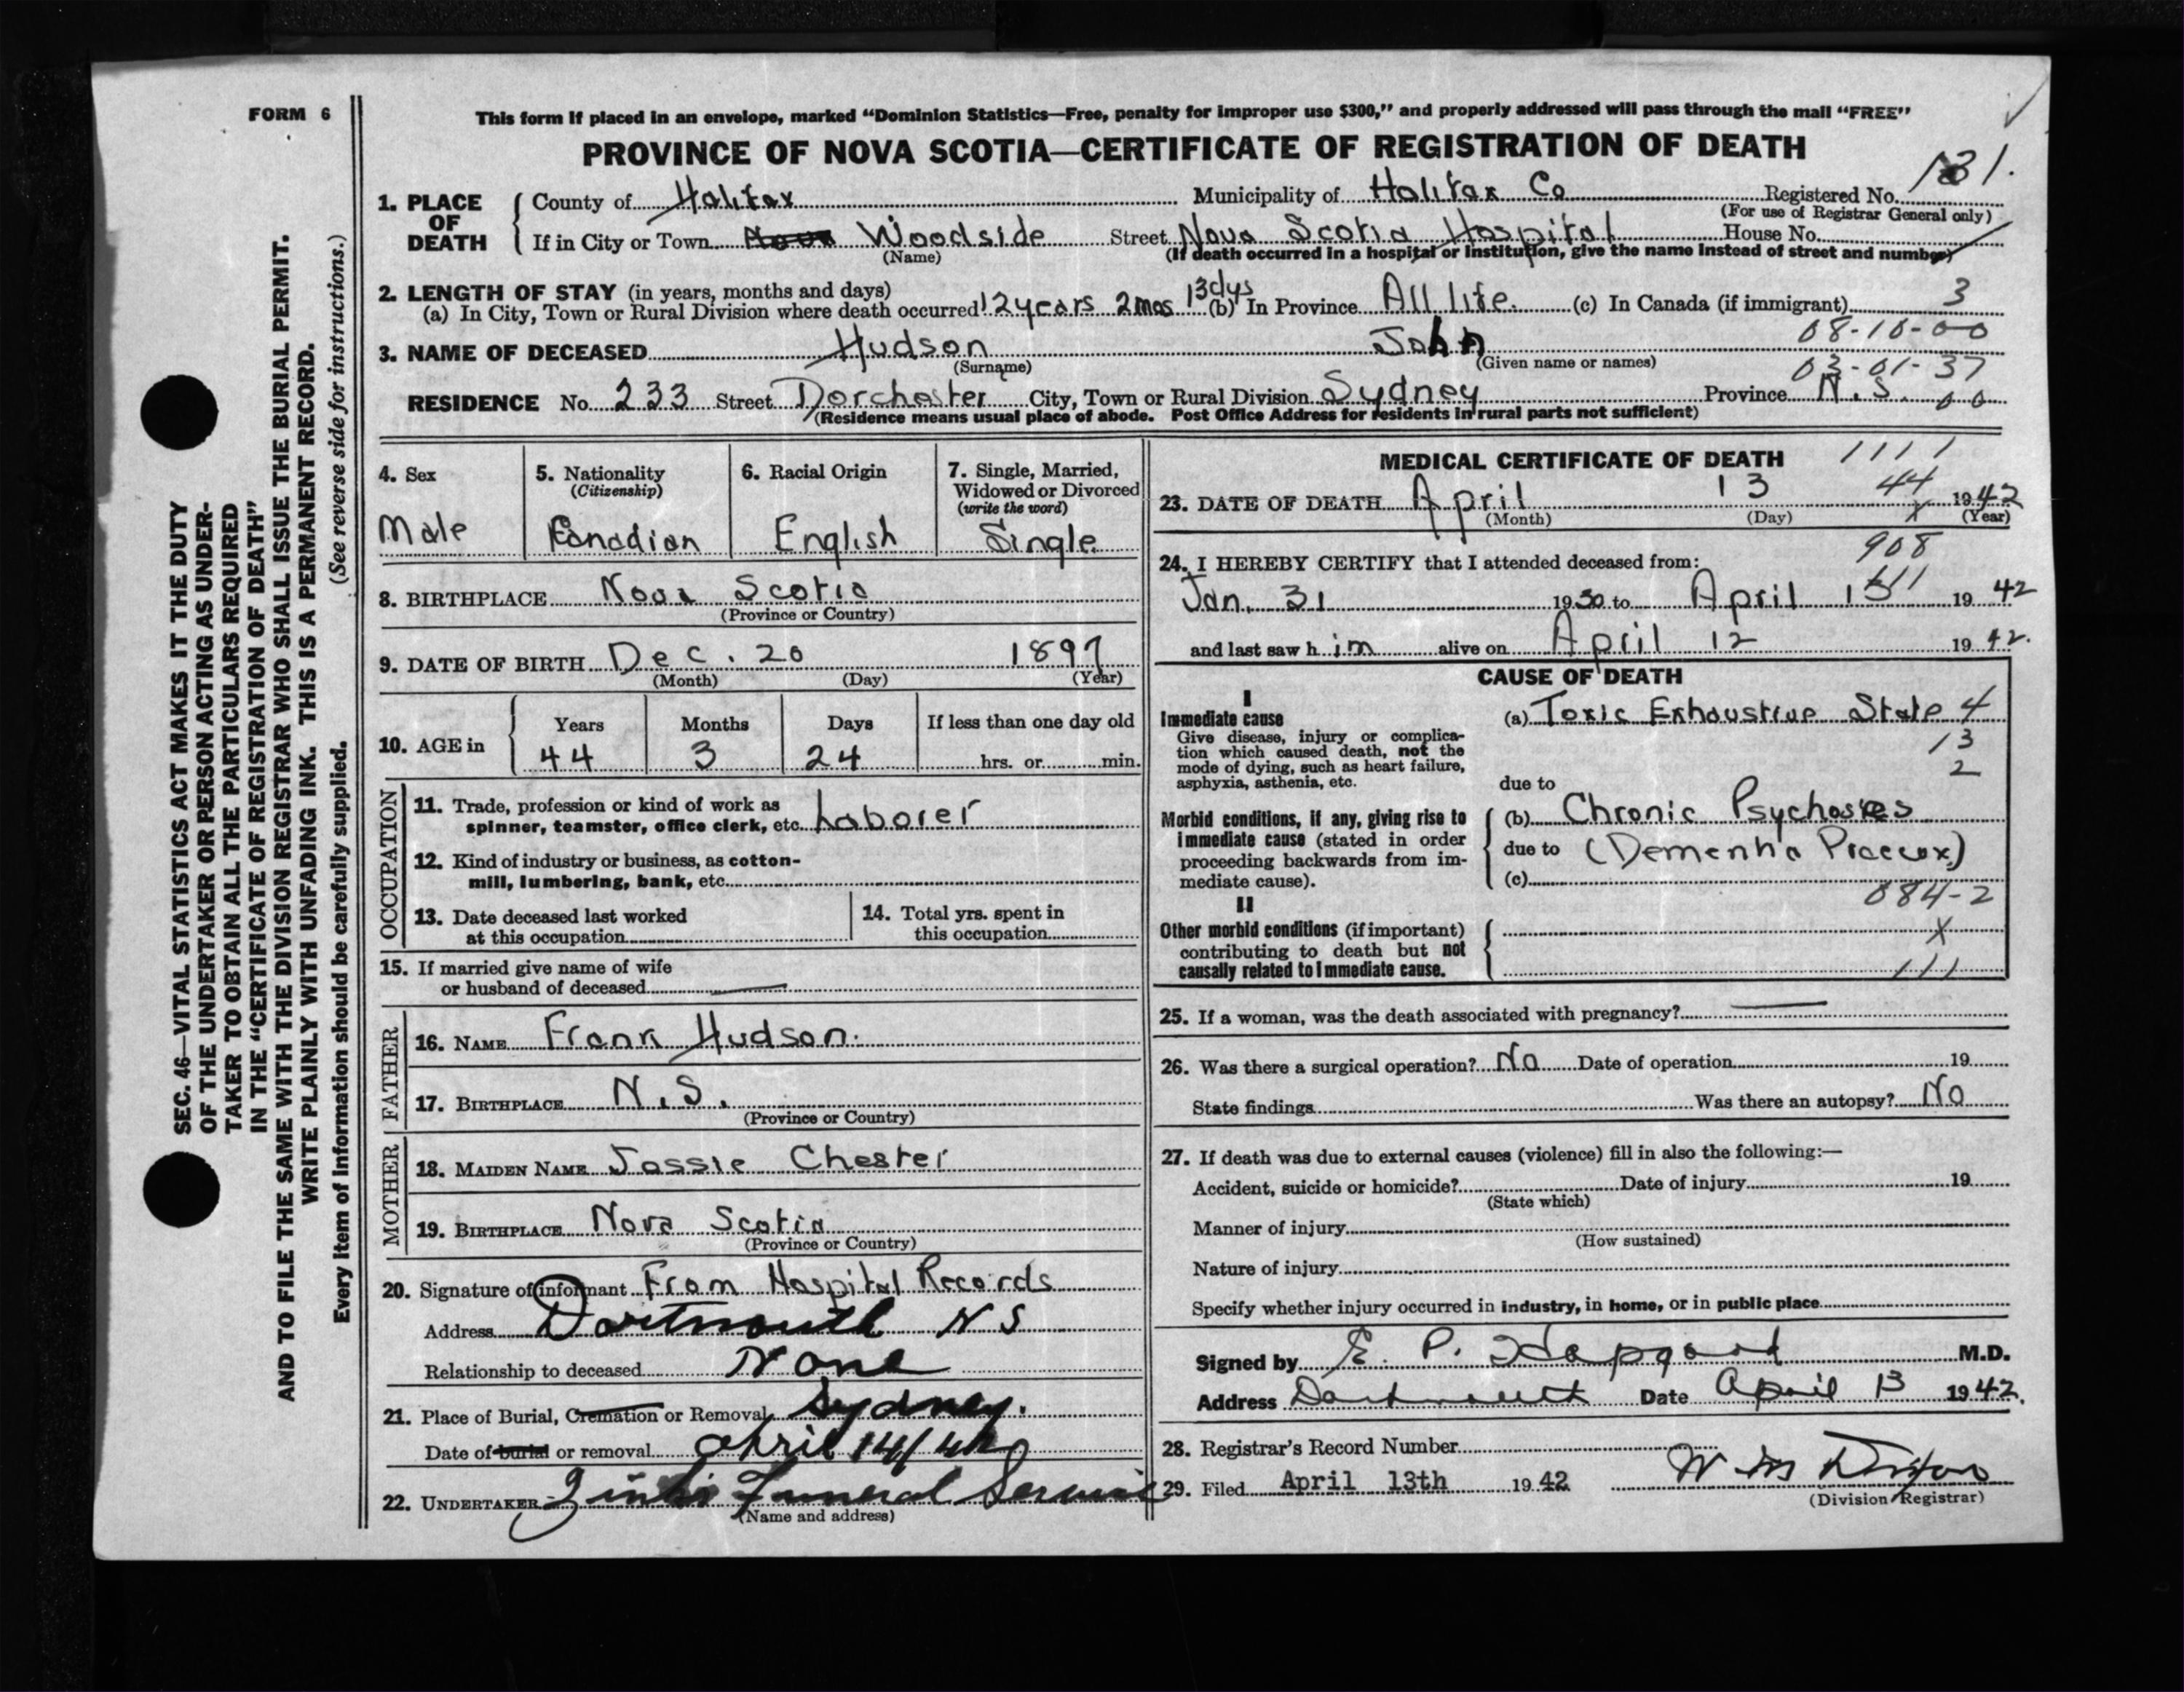 FORM 6
This form if placed in an envelope, marked "Dominion Statistics—Free, penalty for improper use $300," and properly addressed will pass through the mail "FREE"
PROVINCE OF NOVA SCOTIA—CERTIFICATE OF REGISTRATION OF DEATH
1. PLACE OF DEATH
County of Halifax Municipality of Halifax Co Registered No. 131.
(For use of Registrar General only)
If in City or Town Woodside Street Nova Scotia Hospital House No.
(Name) (If death occurred in a hospital or institution, give the name instead of street and number)
2. LENGTH OF STAY (in years, months and days)
(a) In City, Town or Rural Division where death occurred 12 years 2 mos 13 dys (b) In Province All life. (c) In Canada (if immigrant) 3
08-10-00
3. NAME OF DECEASED Hudson John
(Surname) (Given name or names)
03-01-37
RESIDENCE No. 233 Street Dorchester City, Town or Rural Division Sydney Province N.S. 00
(Residence means usual place of abode. Post Office Address for residents in rural parts not sufficient)
4. Sex
Male
5. Nationality
(Citizenship)
Canadian
6. Racial Origin
English
7. Single, Married,
Widowed or Divorced
(write the word)
Single
8. BIRTHPLACE Nova Scotia
(Province or Country)
9. DATE OF BIRTH Dec. 20 1897
(Month) (Day) (Year)
10. AGE in
Years Months Days If less than one day old
44 3 24 hrs. or min.
OCCUPATION
11. Trade, profession or kind of work as
spinner, teamster, office clerk, etc. Laborer
12. Kind of industry or business, as cotton-
mill, lumbering, bank, etc.
13. Date deceased last worked
at this occupation
14. Total yrs. spent in
this occupation
15. If married give name of wife
or husband of deceased —
FATHER
16. NAME Frank Hudson.
17. BIRTHPLACE N.S.
(Province or Country)
MOTHER
18. MAIDEN NAME Jessie Chester
19. BIRTHPLACE Nova Scotia
(Province or Country)
20. Signature of informant From Hospital Records
Address Dartmouth N S
Relationship to deceased None
21. Place of Burial, Cremation or Removal Sydney.
Date of burial or removal April 14/42
22. UNDERTAKER Funeral Service
(Name and address)
MEDICAL CERTIFICATE OF DEATH 1111
44
23. DATE OF DEATH April 13 1942
(Month) (Day) X (Year)
908
24. I HEREBY CERTIFY that I attended deceased from:
111
Jan. 31 1930 to April 13 1942
and last saw him alive on April 12 1942.
CAUSE OF DEATH
I
Immediate cause
Give disease, injury or complica-
tion which caused death, not the
mode of dying, such as heart failure,
asphyxia, asthenia, etc.
(a) Toxic Exhaustive State 4
13
2
due to
Morbid conditions, if any, giving rise to
immediate cause (stated in order
proceeding backwards from im-
mediate cause).
(b) Chronic Psychoses
due to (Dementia Praecox)
(c)
084-2
II
Other morbid conditions (if important)
contributing to death but not
causally related to immediate cause.
X
111
25. If a woman, was the death associated with pregnancy? —
26. Was there a surgical operation? No Date of operation 19
State findings Was there an autopsy? No
27. If death was due to external causes (violence) fill in also the following:—
Accident, suicide or homicide? Date of injury 19
(State which)
Manner of injury
(How sustained)
Nature of injury
Specify whether injury occurred in industry, in home, or in public place
Signed by E. P. Hapgood M.D.
Address Dartmouth Date April 13 1942.
28. Registrar's Record Number
29. Filed April 13th 1942 W
(Division Registrar)
SEC. 46—VITAL STATISTICS ACT MAKES IT THE DUTY
OF THE UNDERTAKER OR PERSON ACTING AS UNDER-
TAKER TO OBTAIN ALL THE PARTICULARS REQUIRED
IN THE "CERTIFICATE OF REGISTRATION OF DEATH"
AND TO FILE THE SAME WITH THE DIVISION REGISTRAR WHO SHALL ISSUE THE BURIAL PERMIT.
WRITE PLAINLY WITH UNFADING INK. THIS IS A PERMANENT RECORD.
Every item of information should be carefully supplied. (See reverse side for instructions.)